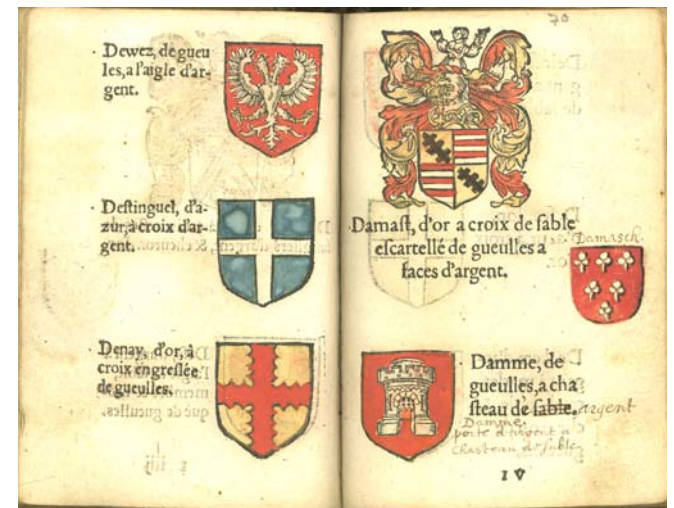 Dewez, de gueu
les, a l'aigle d'ar-
gent.
Destinguel, d'a-
zur, à croix d'ar-
gent.
Denay, d'or, à
croix engreslée
de gueulles.
70
Damast, d'or a croix de sable
escartellé de gueulles a
faces d'argent.
Damasch.
Damme, de
gueulles, a cha
steau de sable. argent
Damme.
porte d'argent a
Chasteau de sable
I V